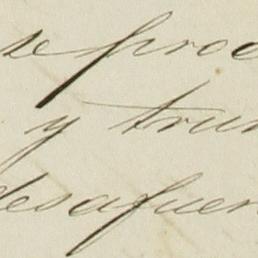 se proc
y trun
desafuer